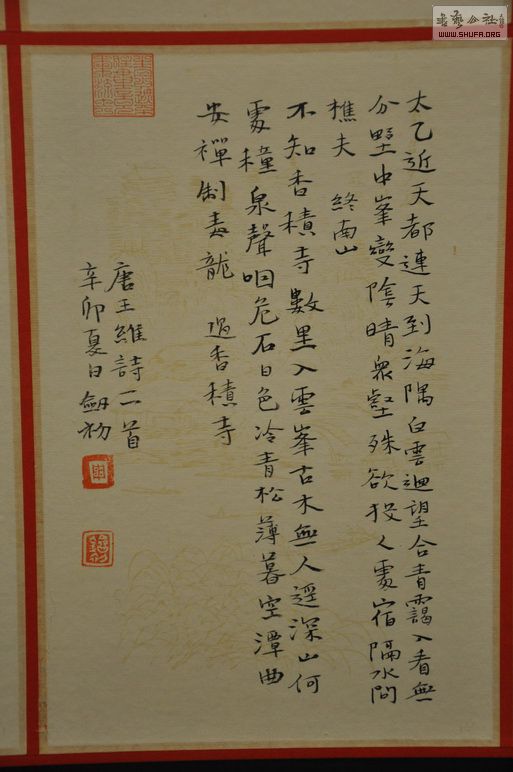 太乙近天都連天到海隅白雲迴望合青靄入看無
分野中峯變陰晴衆壑殊欲投人處宿隔水問
樵夫 終南山
不知香積寺數里入雲峯古木無人逕深山何
處穜泉聲咽危石日色冷青松薄暮空潭曲
安禪制毒龍 過香積寺
唐王維詩二首
辛卯夏日劍
書藝公社
WWW.SHUFA.ORG